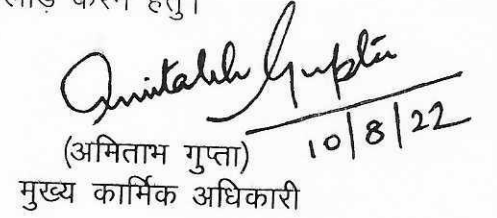 करने हेतु।
Amitabh Gupta
10/8/22
(अमिताभ गुप्ता)
मुख्य कार्मिक अधिकारी